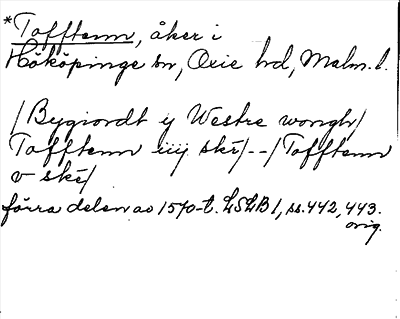 *Tofftenn, åker i
Hököpinge sn, Oxie hd, Malm. l.
/Bygiordt ij Westre wongh/
Tofftenn iiij skē/--/Tofftenn
v skē/
förra delen av 1570-t. LSLB 1, ss. 442, 443.
orig.